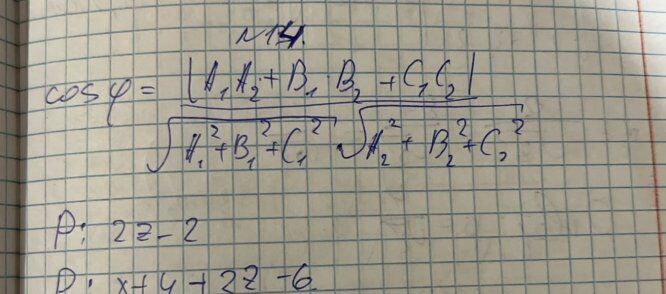 N14.
cos φ = |A₁A₂ + B₁·B₂ + C₁C₂| / √A₁² + B₁² + C₁² √A₂² + B₂² + C₂²
P: 2z - 2
D: x + y + 2z - 6